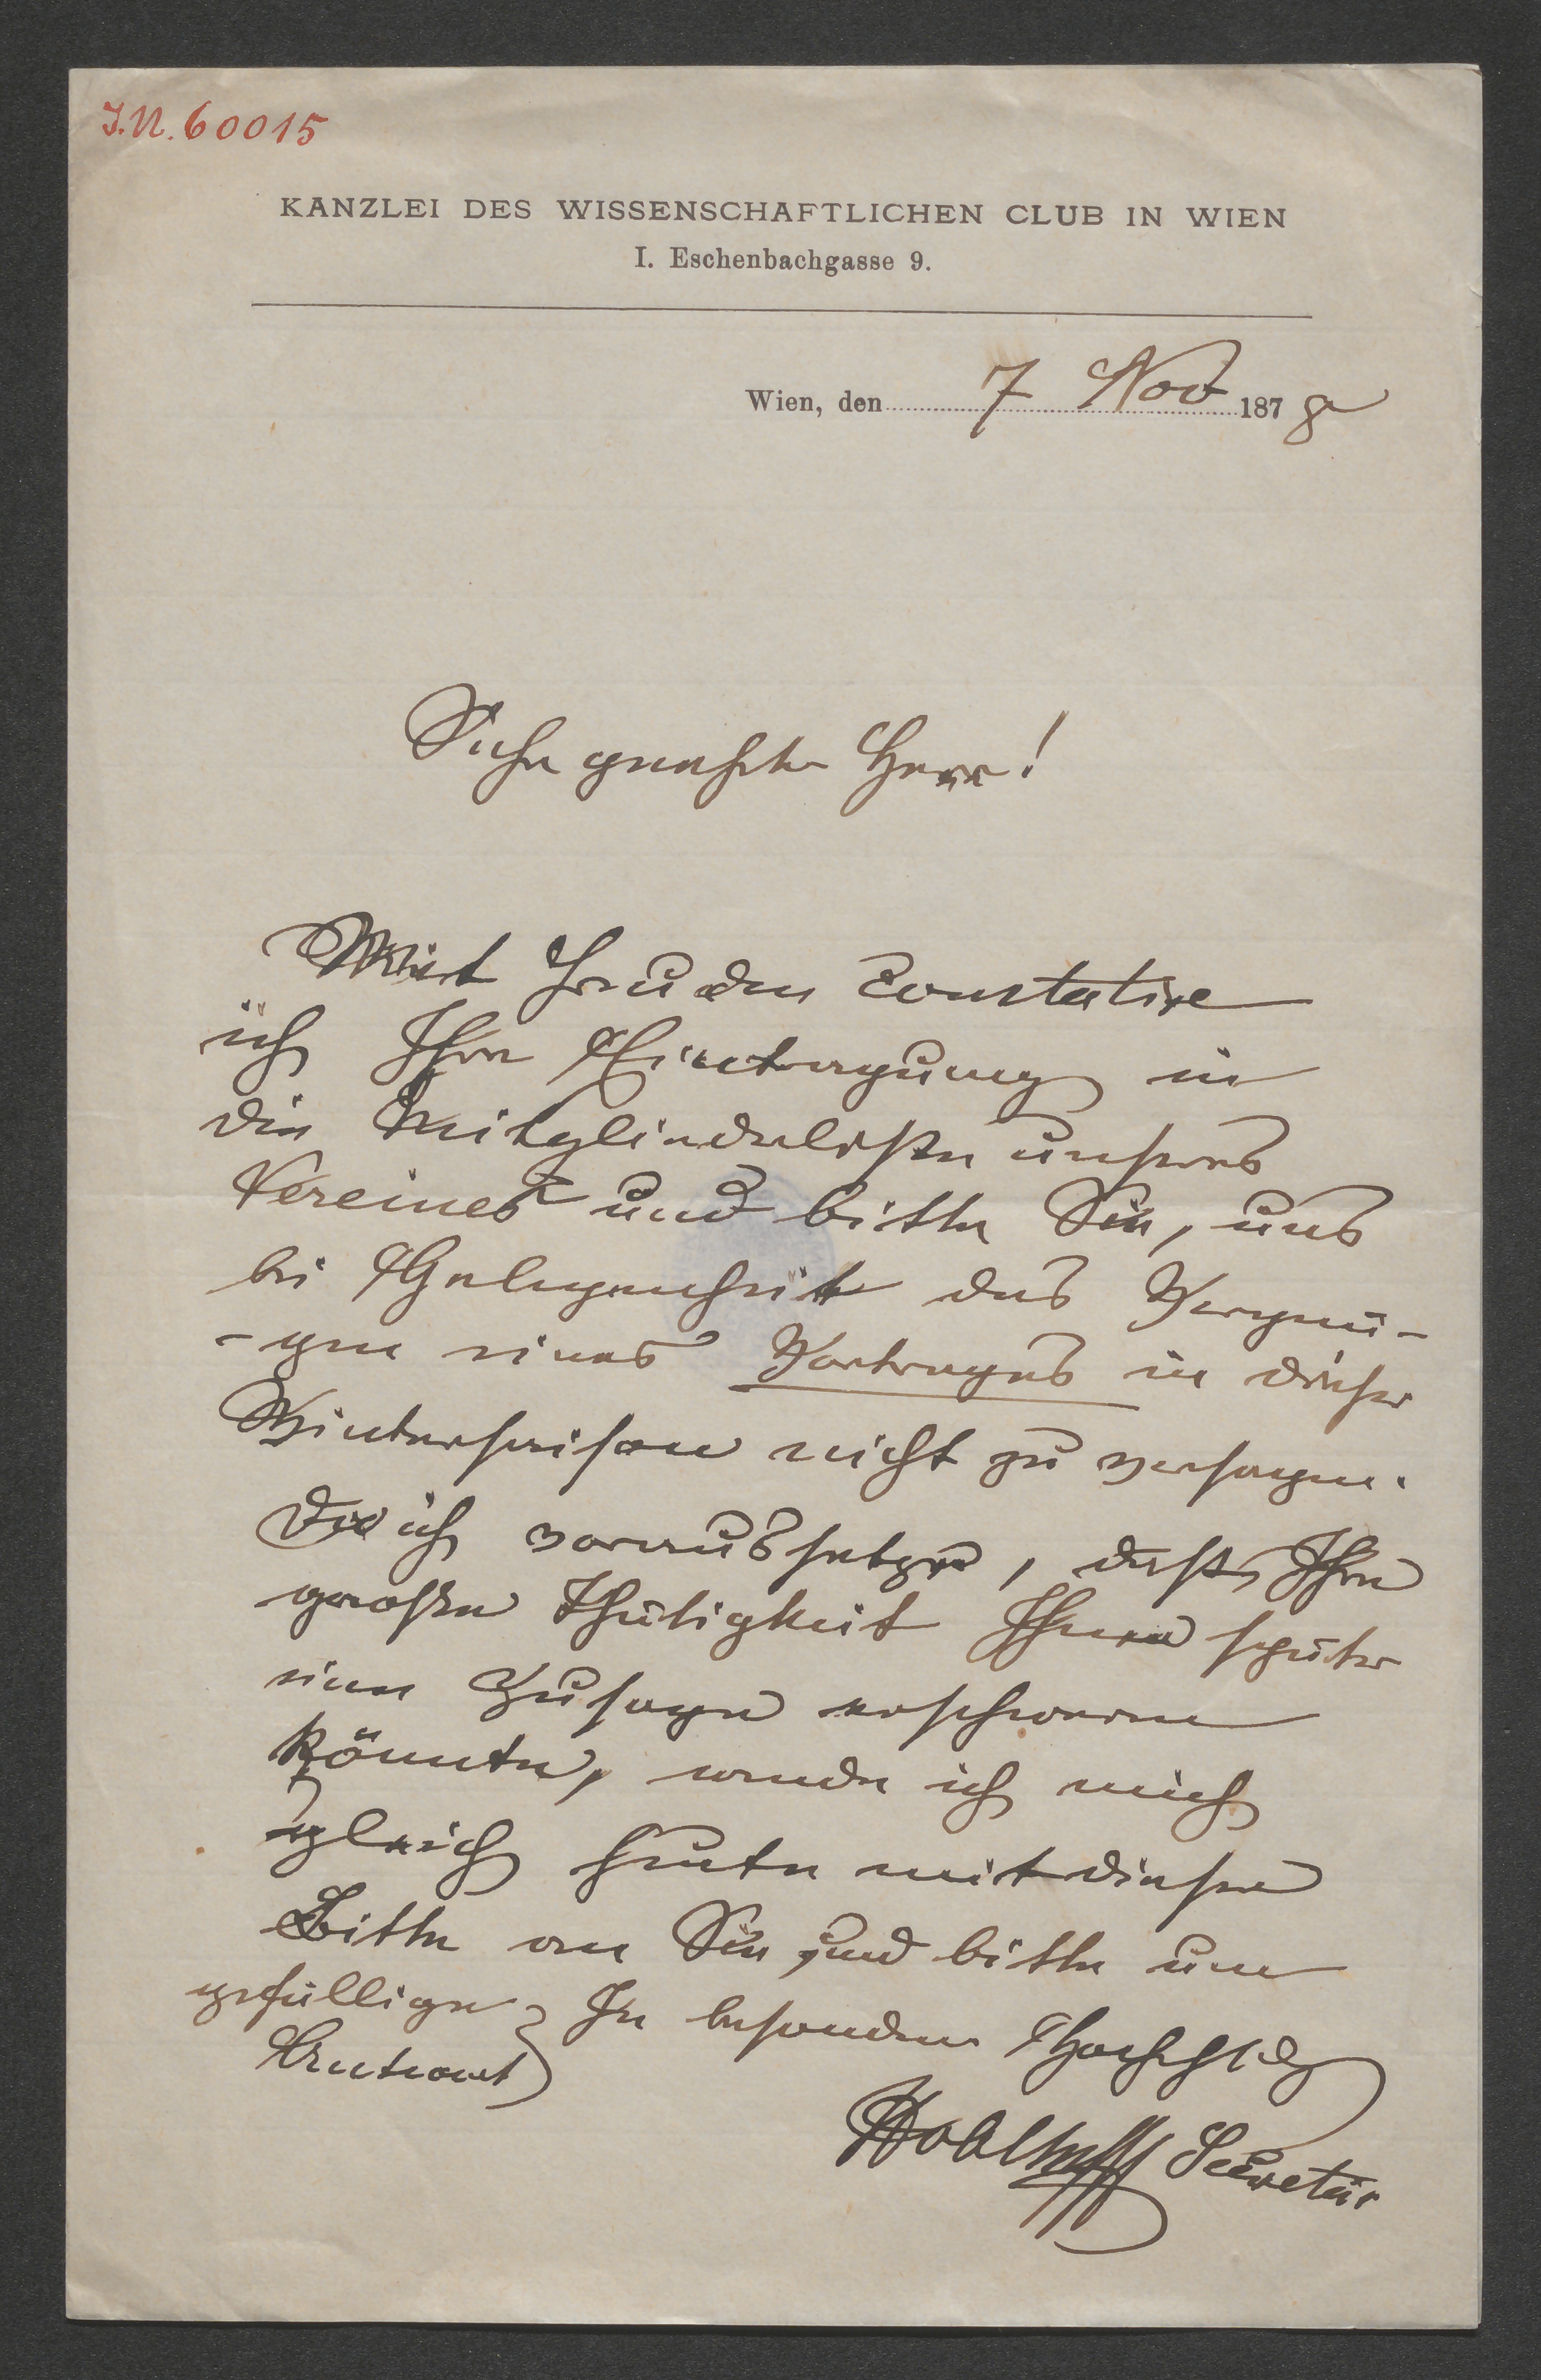 I.N. 60015
KANZLEI DES WISSENSCHAFTLICHEN CLUB IN WIEN
I. Eschenbachgasse 9.
Wien, den 7 Nov 1878
Sehr geehrter Herr!
Mit Freuden constatire
ich Ihre Eintragung in
die Mitgliederliste unseres
Vereines und bitte Sie, uns
bei Gelegenheit das Vergnü-
-gen eines Vortrages in dieser
Wintersaison nicht zu versagen.
Da ich voraussetze, dass Ihre
große Thätigkeit Ihnen später
eine Zusage erschweren
könnte, wende ich mich
gleich heute mit dieser
Bitte an Sie und bitte um
gefällige In besonderer Hochachtg
Antwort
Secretär